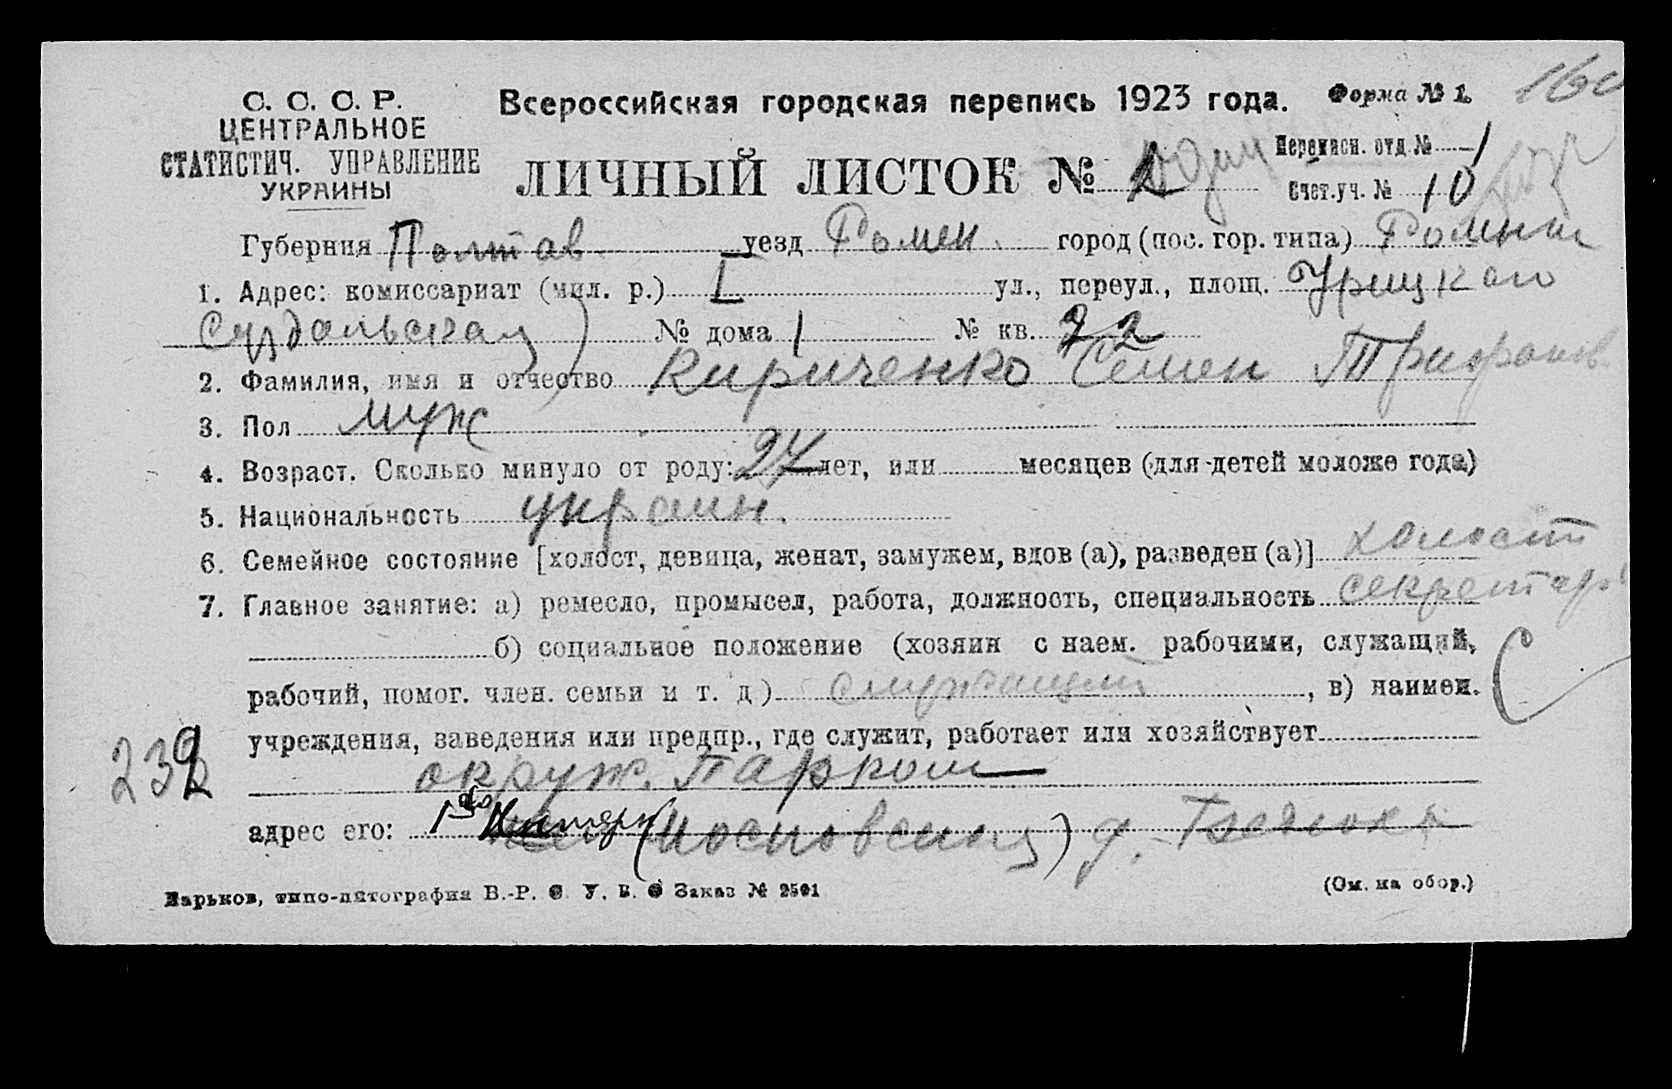 С. С. С. Р.
ЦЕНТРАЛЬНОЕ
СТАТИСТИЧ. УПРАВЛЕНИЕ
УКРАИНЫ
Всероссийская городская перепись 1923 года. Форма № 1.
ЛИЧНЫЙ ЛИСТОК №
Переписн. отд. № 1
Счет. уч. № 10
Губерния Полтав уезд Ромен. город (пос. гор. типа) Ромны
1. Адрес: комиссариат (мил. р.) I ул., переул., площ. Урицкого
Суздальская) № дома 1 № кв. 22
2. Фамилия, имя и отчество Кириченко Семен Трифонов.
3. Пол муж
4. Возраст. Сколько минуло от роду: 27 лет, или месяцев (для детей моложе года)
5. Национальность украин.
6. Семейное состояние [холост, девица, женат, замужем, вдов (а), разведен (а)] холост
7. Главное занятие: а) ремесло, промысел, работа, должность, специальность секретарь
б) социальное положение (хозяин с наем. рабочими, служащий,
рабочий, помог. член. семьи и т. д.) служащий, в) наимен. С
учреждения, заведения или предпр., где служит, работает или хозяйствует
232
окруж. Парком
адрес его: 1го
Харьков, типо-литография В.-Р. С. У. В. О Заказ № 2501
(См. на обор.)